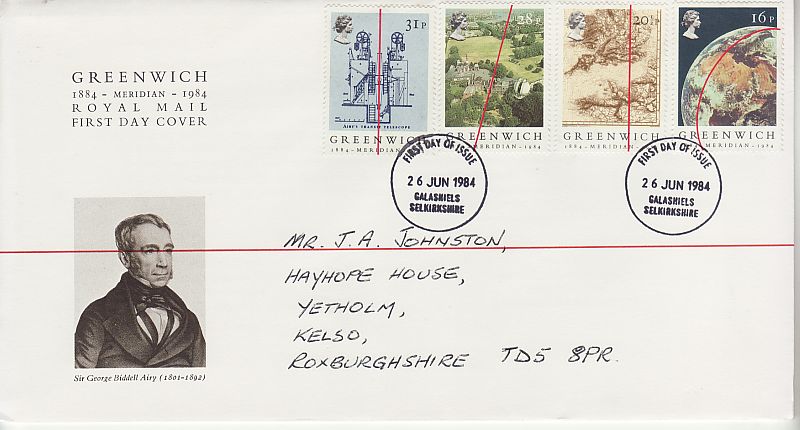 31P
28P
20½P
16P
AIRY'S TRANSIT TELESCOPE
GREENWICH
1884 – MERIDIAN – 1984
GREENWICH
1884 – MERIDIAN – 1984
GREENWICH
1884 – MERIDIAN – 1984
GREENWICH
1884 – MERIDIAN – 1984
GREENWICH
1884 – MERIDIAN – 1984
ROYAL MAIL
FIRST DAY COVER
FIRST DAY OF ISSUE
26 JUN 1984
GALASHIELS
SELKIRKSHIRE
FIRST DAY OF ISSUE
26 JUN 1984
GALASHIELS
SELKIRKSHIRE
MR. J.A. JOHNSTON,
HAYHOPE HOUSE,
YETHOLM,
KELSO,
ROXBURGHSHIRE TD5 8PR.
Sir George Biddell Airy (1801-1892)